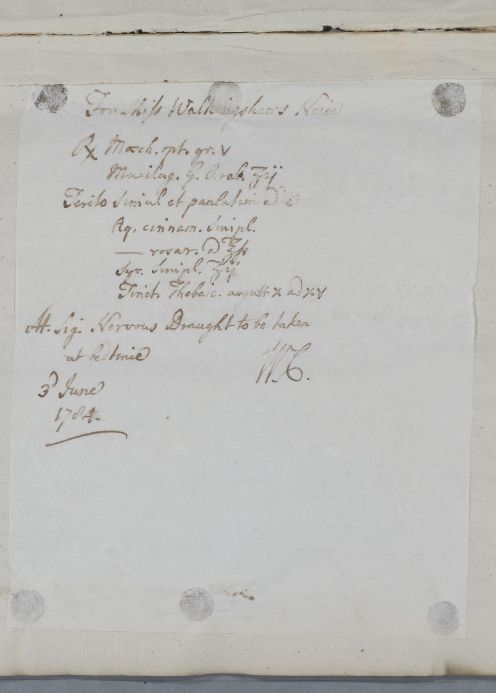 For Miss Walkingshaws Neice
℞ Mosch. opt. gr. v
Mucilag. G. Arab. ʒij
Terito simul et paulatim adde
Aq. cinnam. simpl.
— rosar. a ℥ſs
Syr. Simpl. ʒij
Tinct. Thebaic. gutt x ad xv
M. Sig. Nervous Draught to be taken
at bedtime
W.C.
3d June
1784.